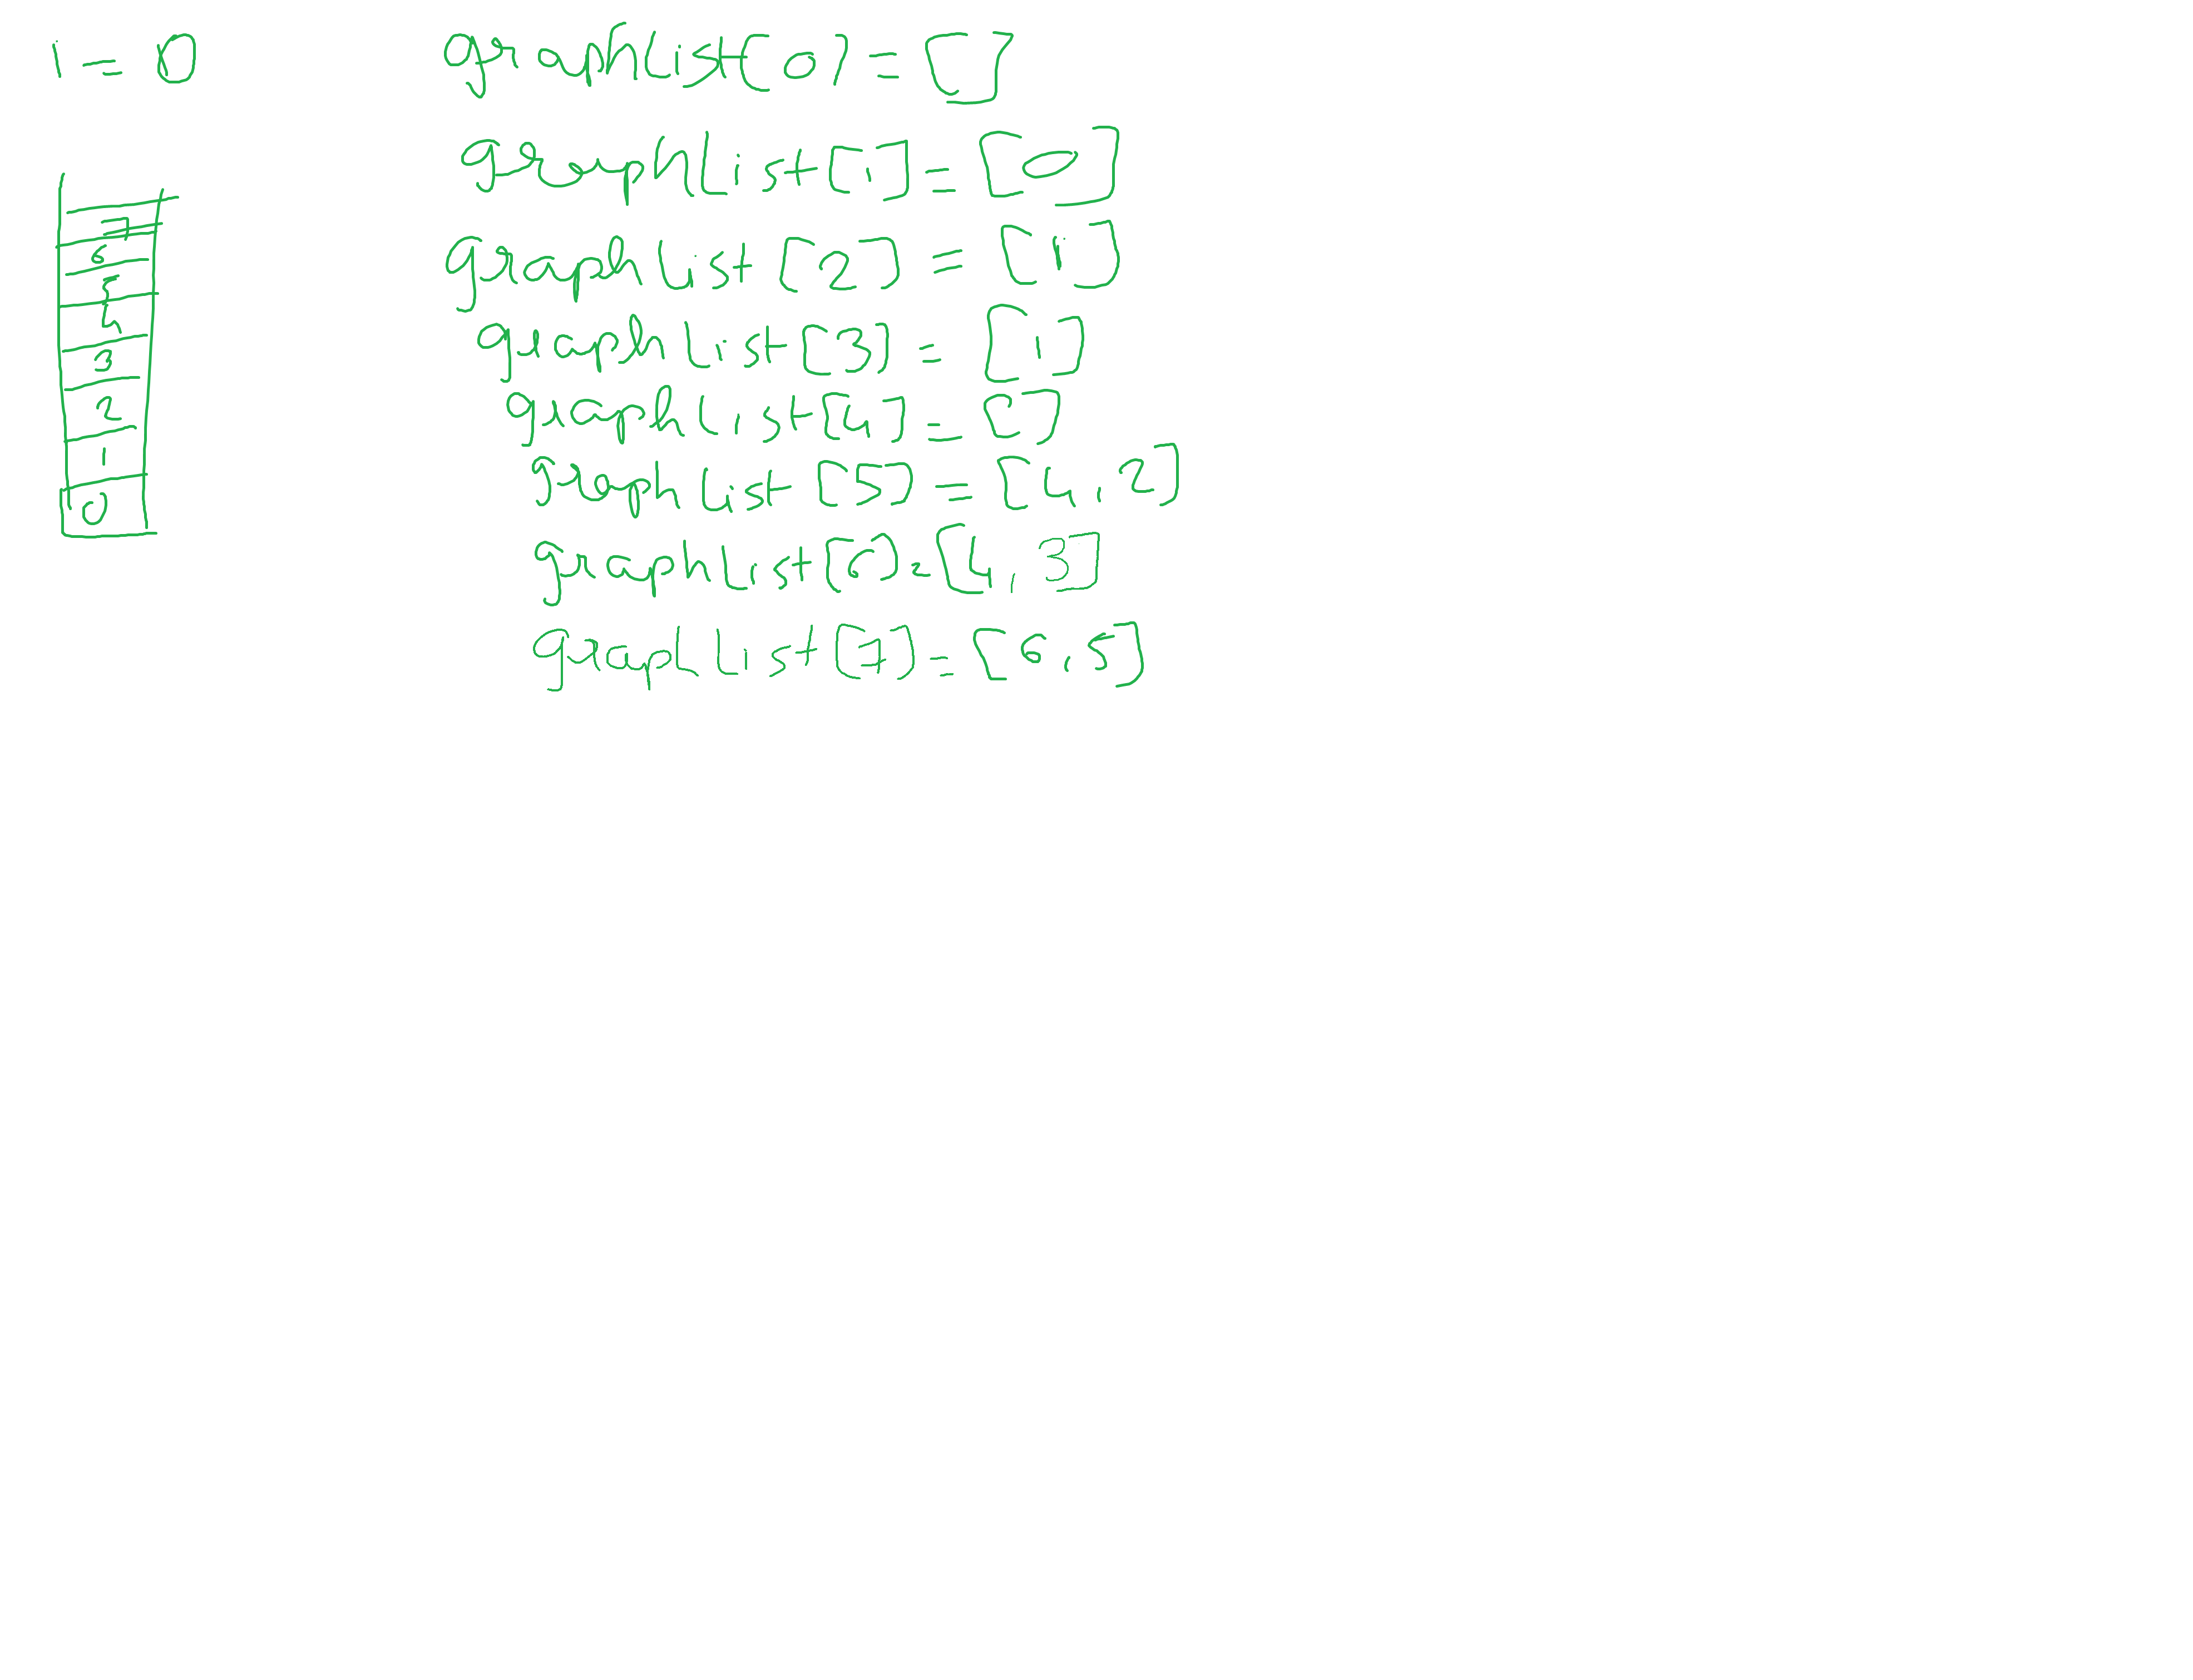 i = 0
graphList[0] = []
graphList[1] = [0]
graphList[2] = [1]
graphList[3] = [1]
graphList[4] = []
graphList[5] = [4, 2]
graphList[6] = [4, 3]
graphList[7] = [6, 5]
7
6
5
4
3
2
1
0